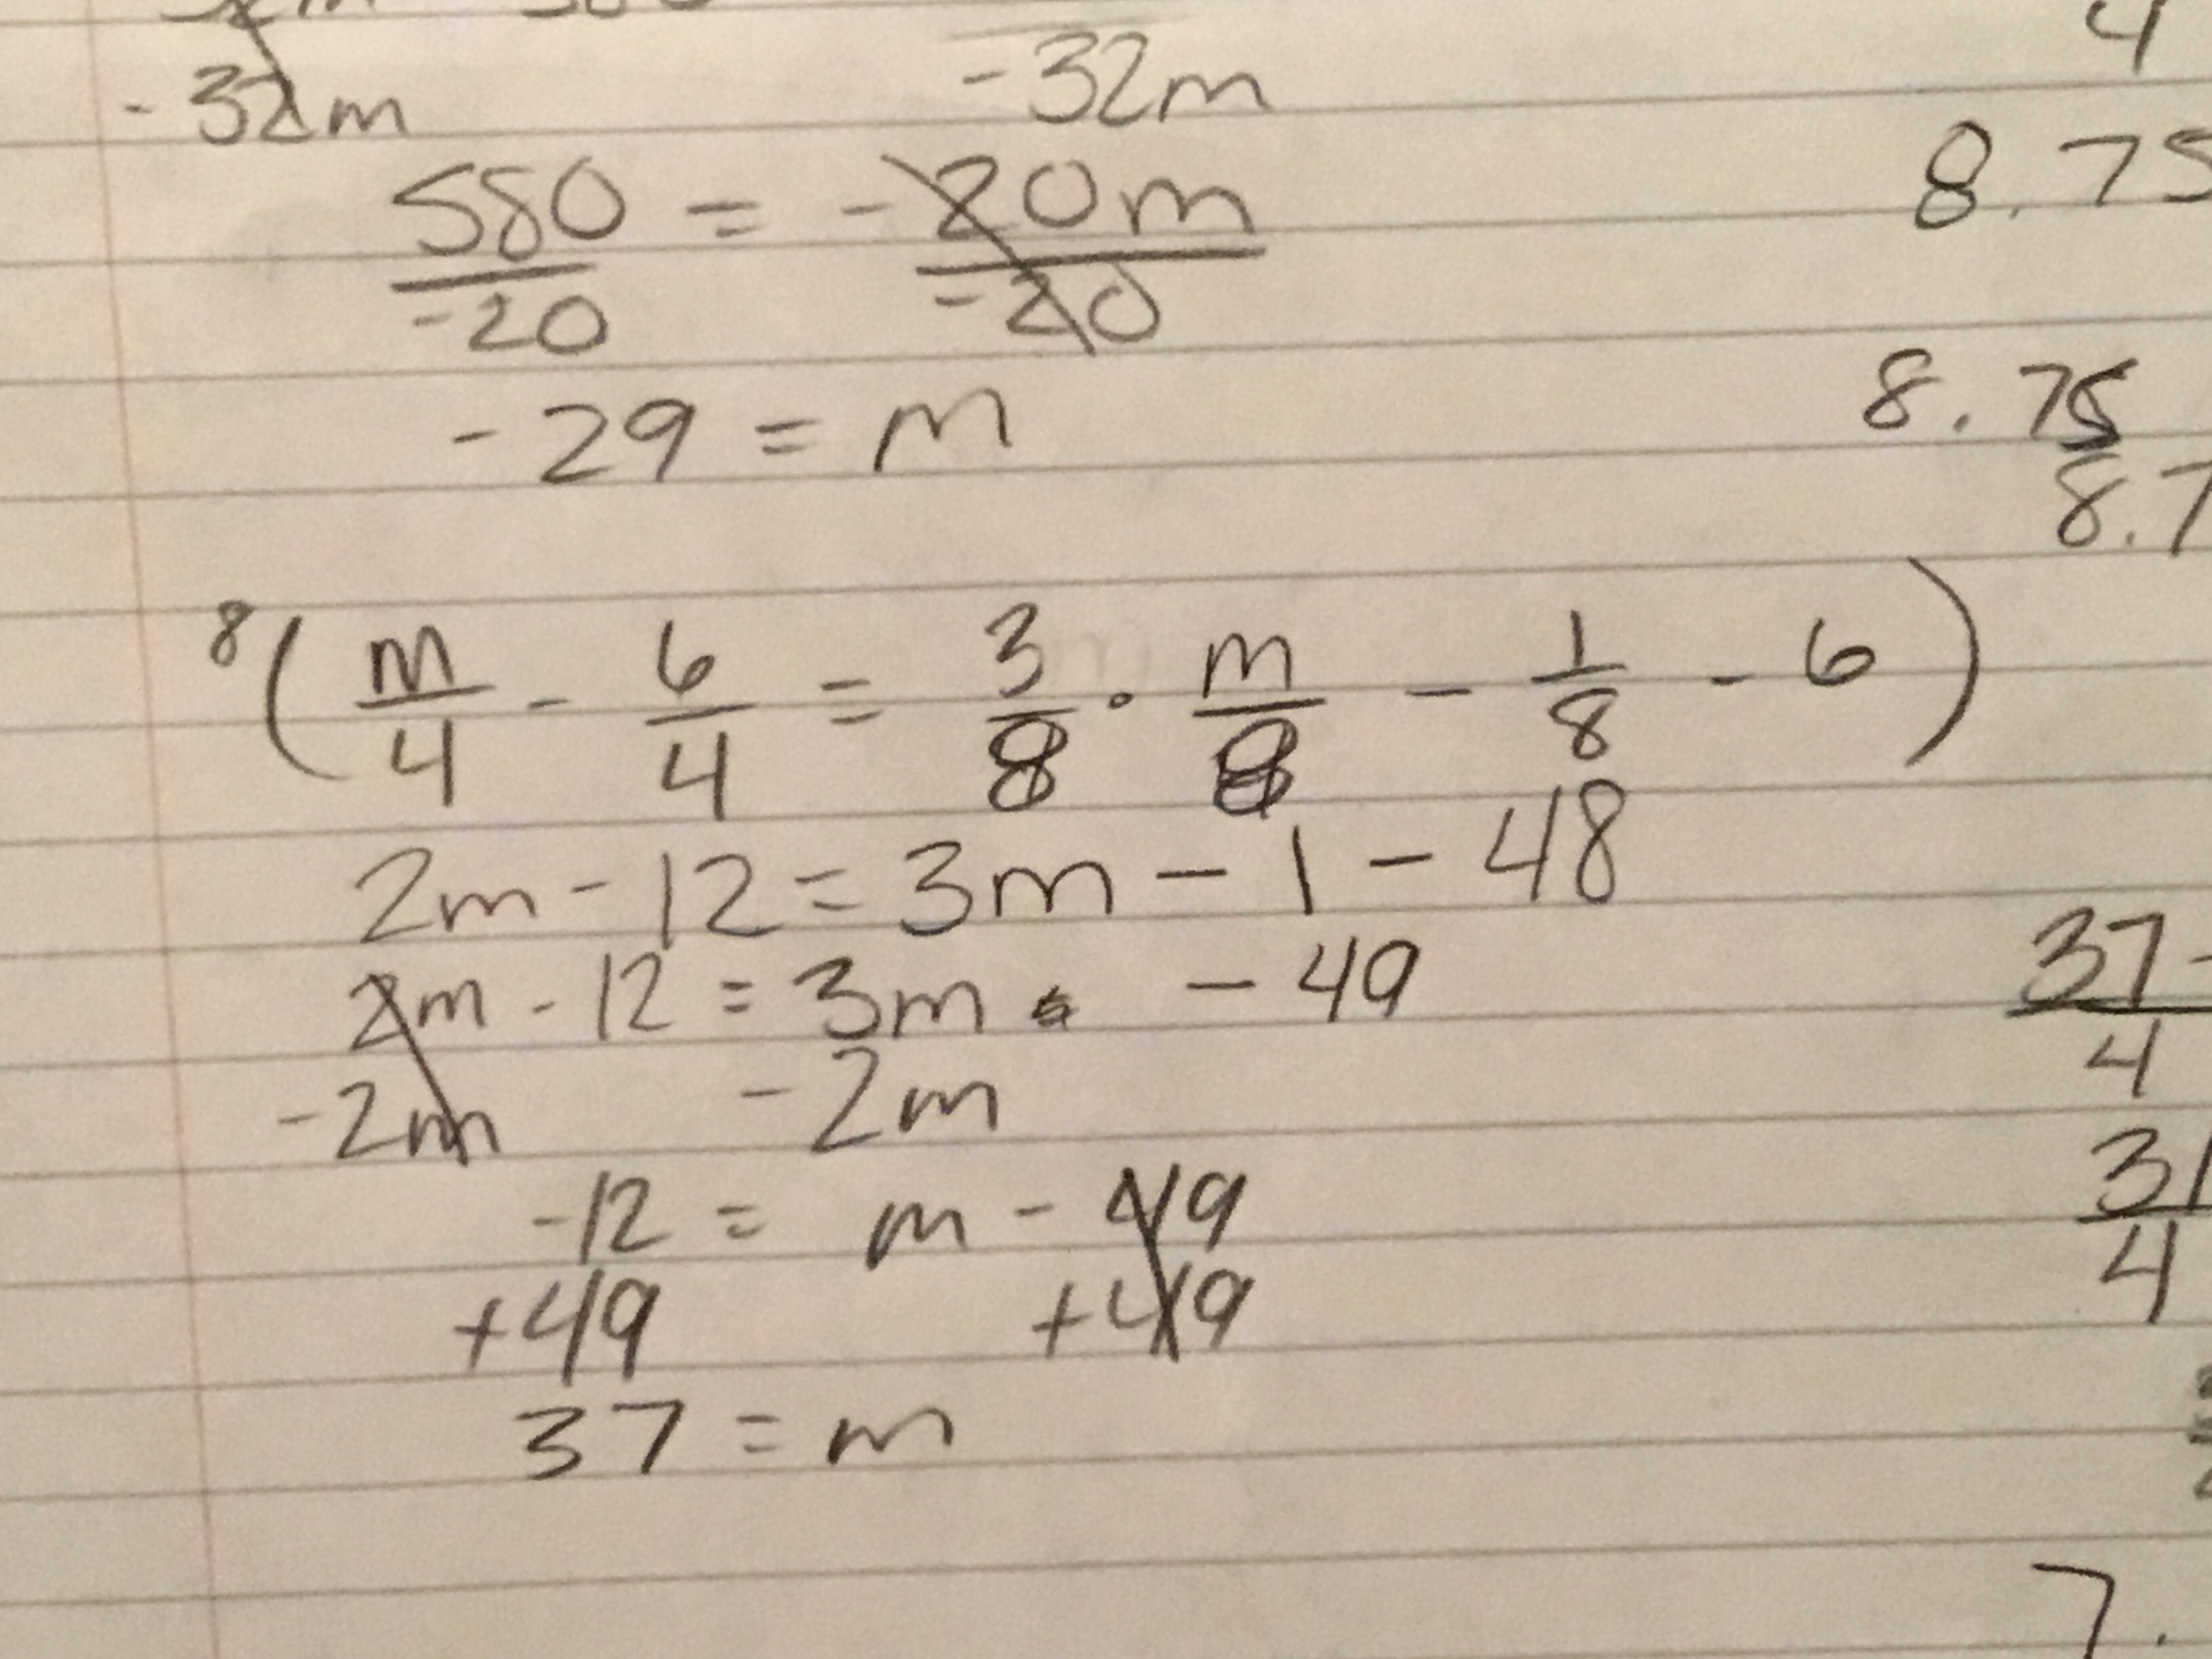 -32m -32m
580/-20 = -20m/-20
-29 = m
8(m/4 - 6/4 = 3/8 · m/8 - 1/8 - 6)
2m - 12 = 3m - 1 - 48
2m - 12 = 3m - 49
-2m -2m
-12 = m - 49
+49 +49
37 = m
4
8.75
8.75
8.7
37-/4
31/4
7.